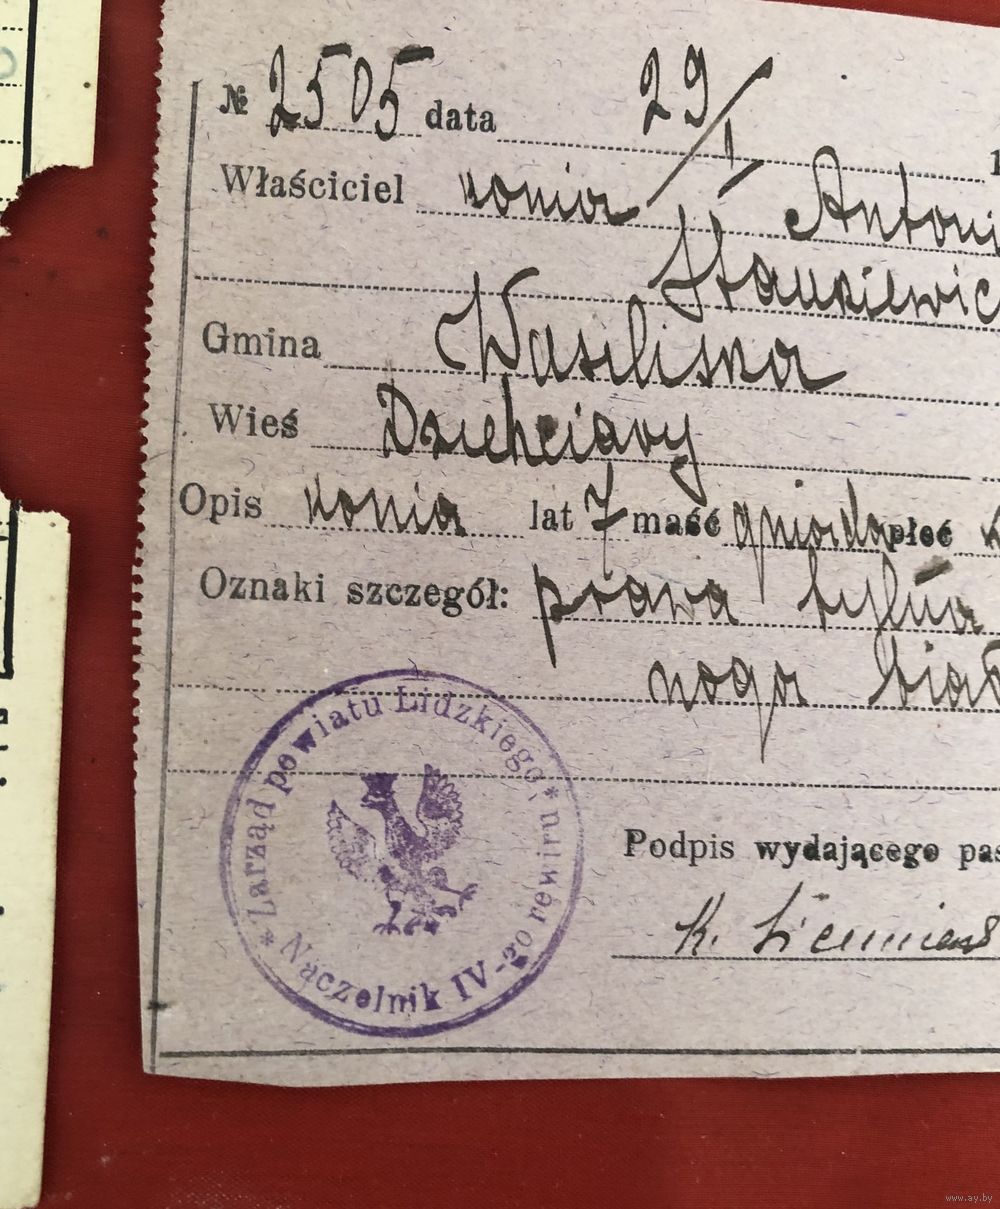 № 2505 data 29/I 1
Właściciel konia Antoni
Stankiewic
Gmina Wasiliszka
Wieś Dziehciary
Opis konia lat 7 maść gniada płeć
Oznaki szczegół: prawa tylna
noga biał
Zarząd powiatu Lidzkiego
* Naczelnik IV-go rewiru *
Podpis wydającego pas
K.
www.ay.by